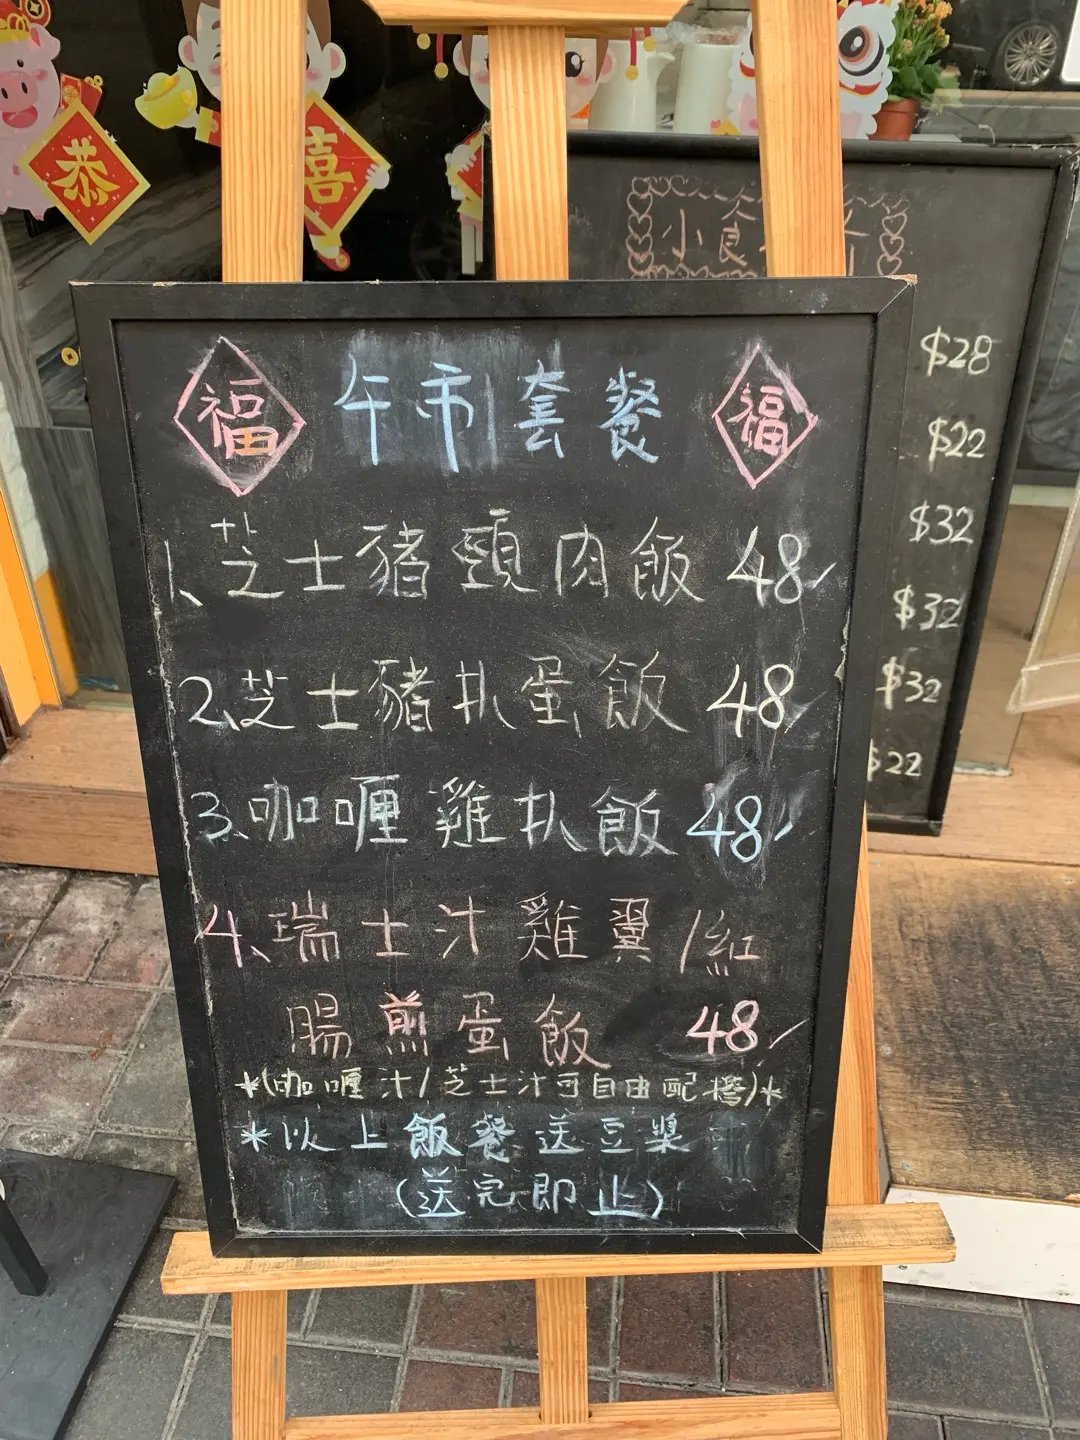 恭
喜
小食
$28
$22
$32
$32
$32
$22
福 午市套餐 福
1、芝士豬頸肉飯 48/
2、芝士豬扒蛋飯 48/
3、咖喱雞扒飯 48/
4、瑞士汁雞翼/紅
腸煎蛋飯 48/
*(咖喱汁/芝士汁可自由配搭)*
*以上飯餐送豆漿
(送完即止)